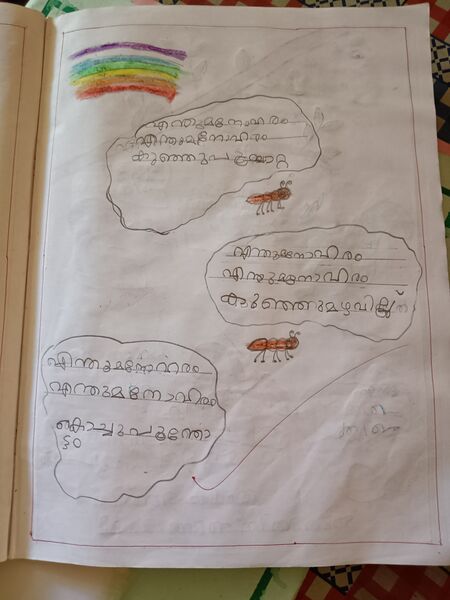 എന്തുമനോഹരം
എന്തുമനോഹരം
കുഞ്ഞുപൂമ്പാറ്റ
എന്തുമനോഹരം
എന്തുമനോഹരം
കുഞ്ഞുമഴവില്ല്
എന്തുമനോഹരം
എന്തുമനോഹരം
കൊച്ചുപൂന്തോ
ട്ടം